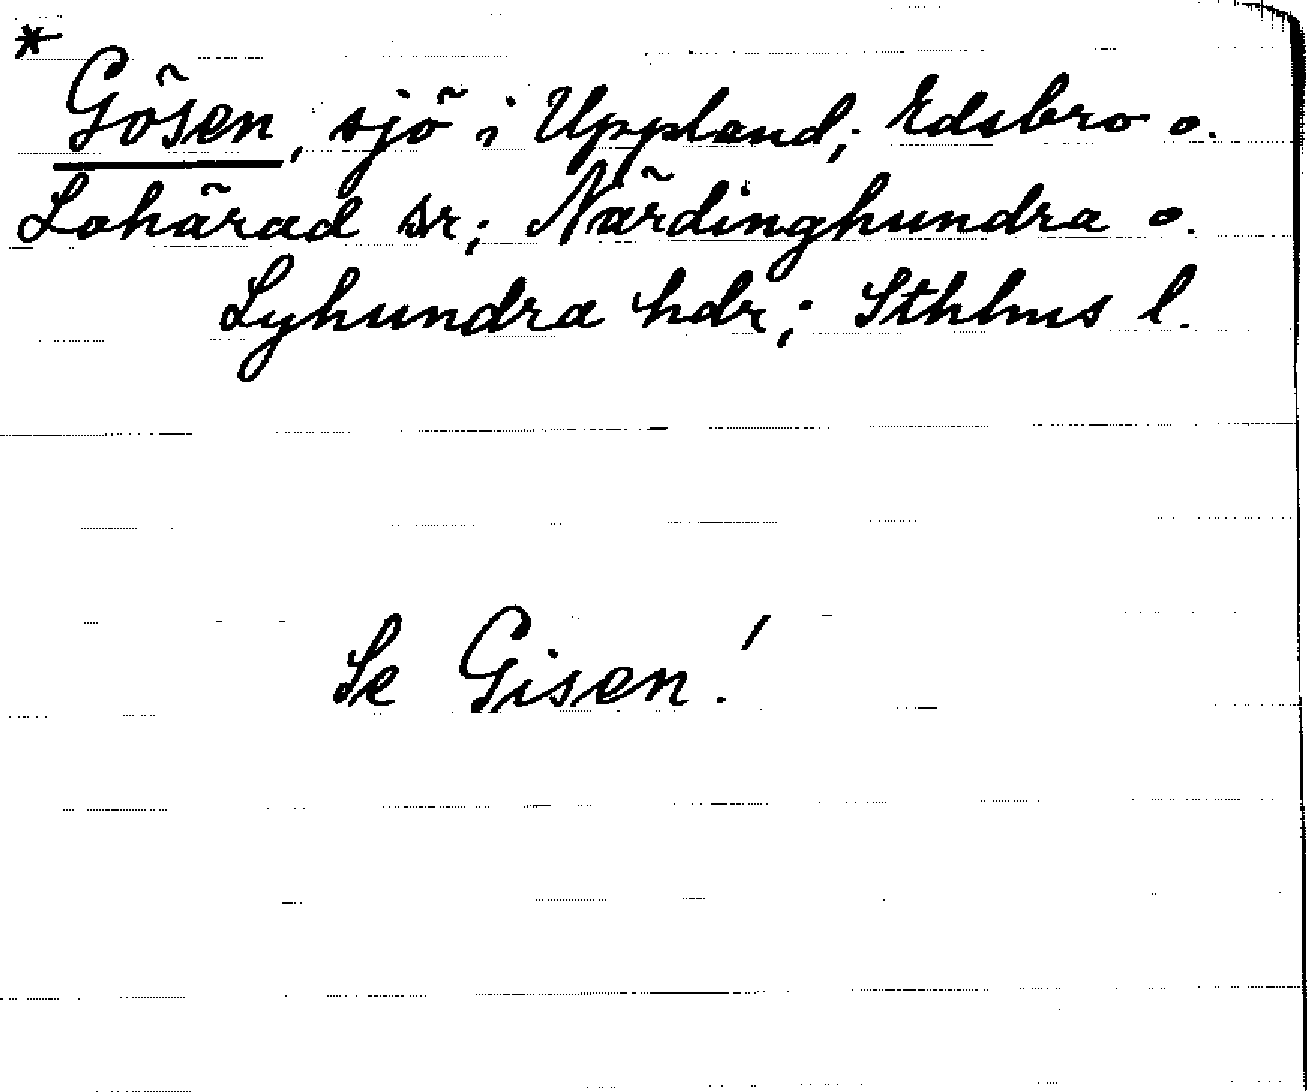 * Gösen, sjö i Uppland; Edsbro o.
Lohärad sr; Närdinghundra o.
Lyhundra hdr; Sthlms l.
Se Gisen!